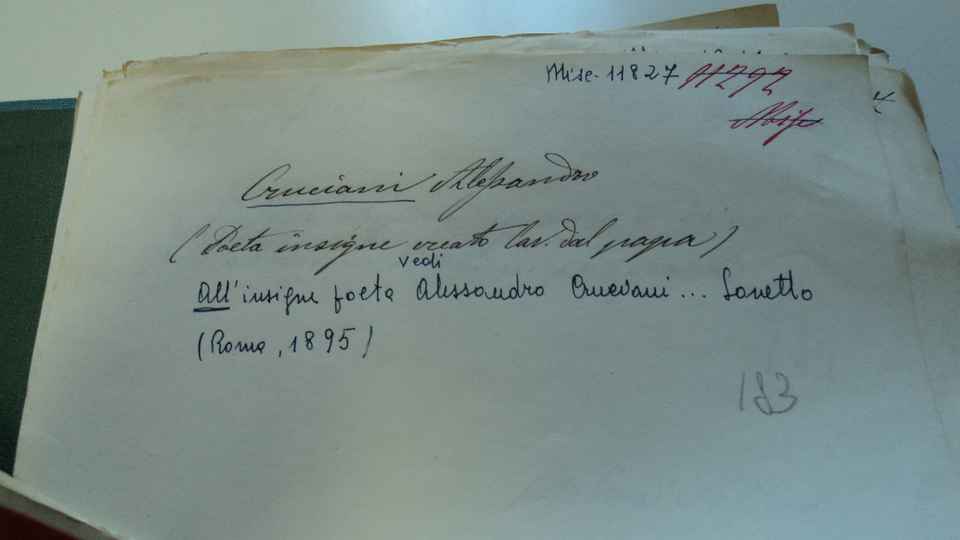 Misc. 11827 11297
Misc
Cruciani Alessandro
(Poeta insigne creato Cav. dal papa)
vedi
All'insigne poeta Alessandro Cruciani... Sonetto
(Roma, 1895)
183